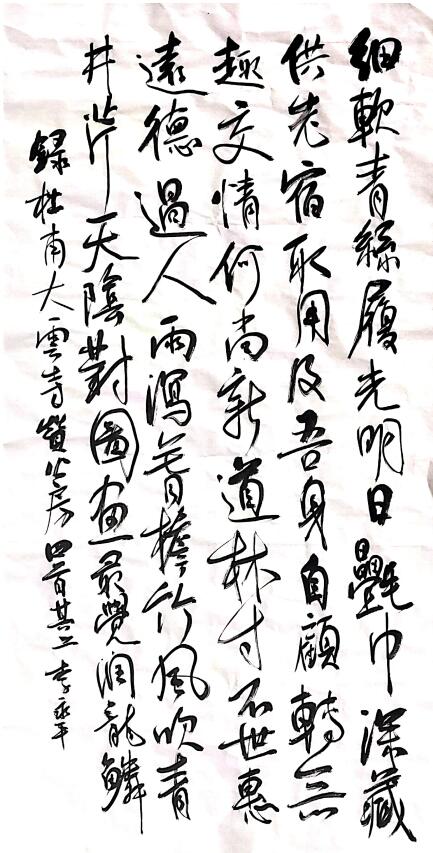 細軟青絲履光明白氎巾深藏
供老宿取用及吾身自顧轉無
趣交情何尚新道林才不世惠
遠德過人雨瀉暮檐竹風吹青
井芹天陰對圖畫最覺潤龍鱗
錄杜甫大雲寺贊公房四首其二 李永平